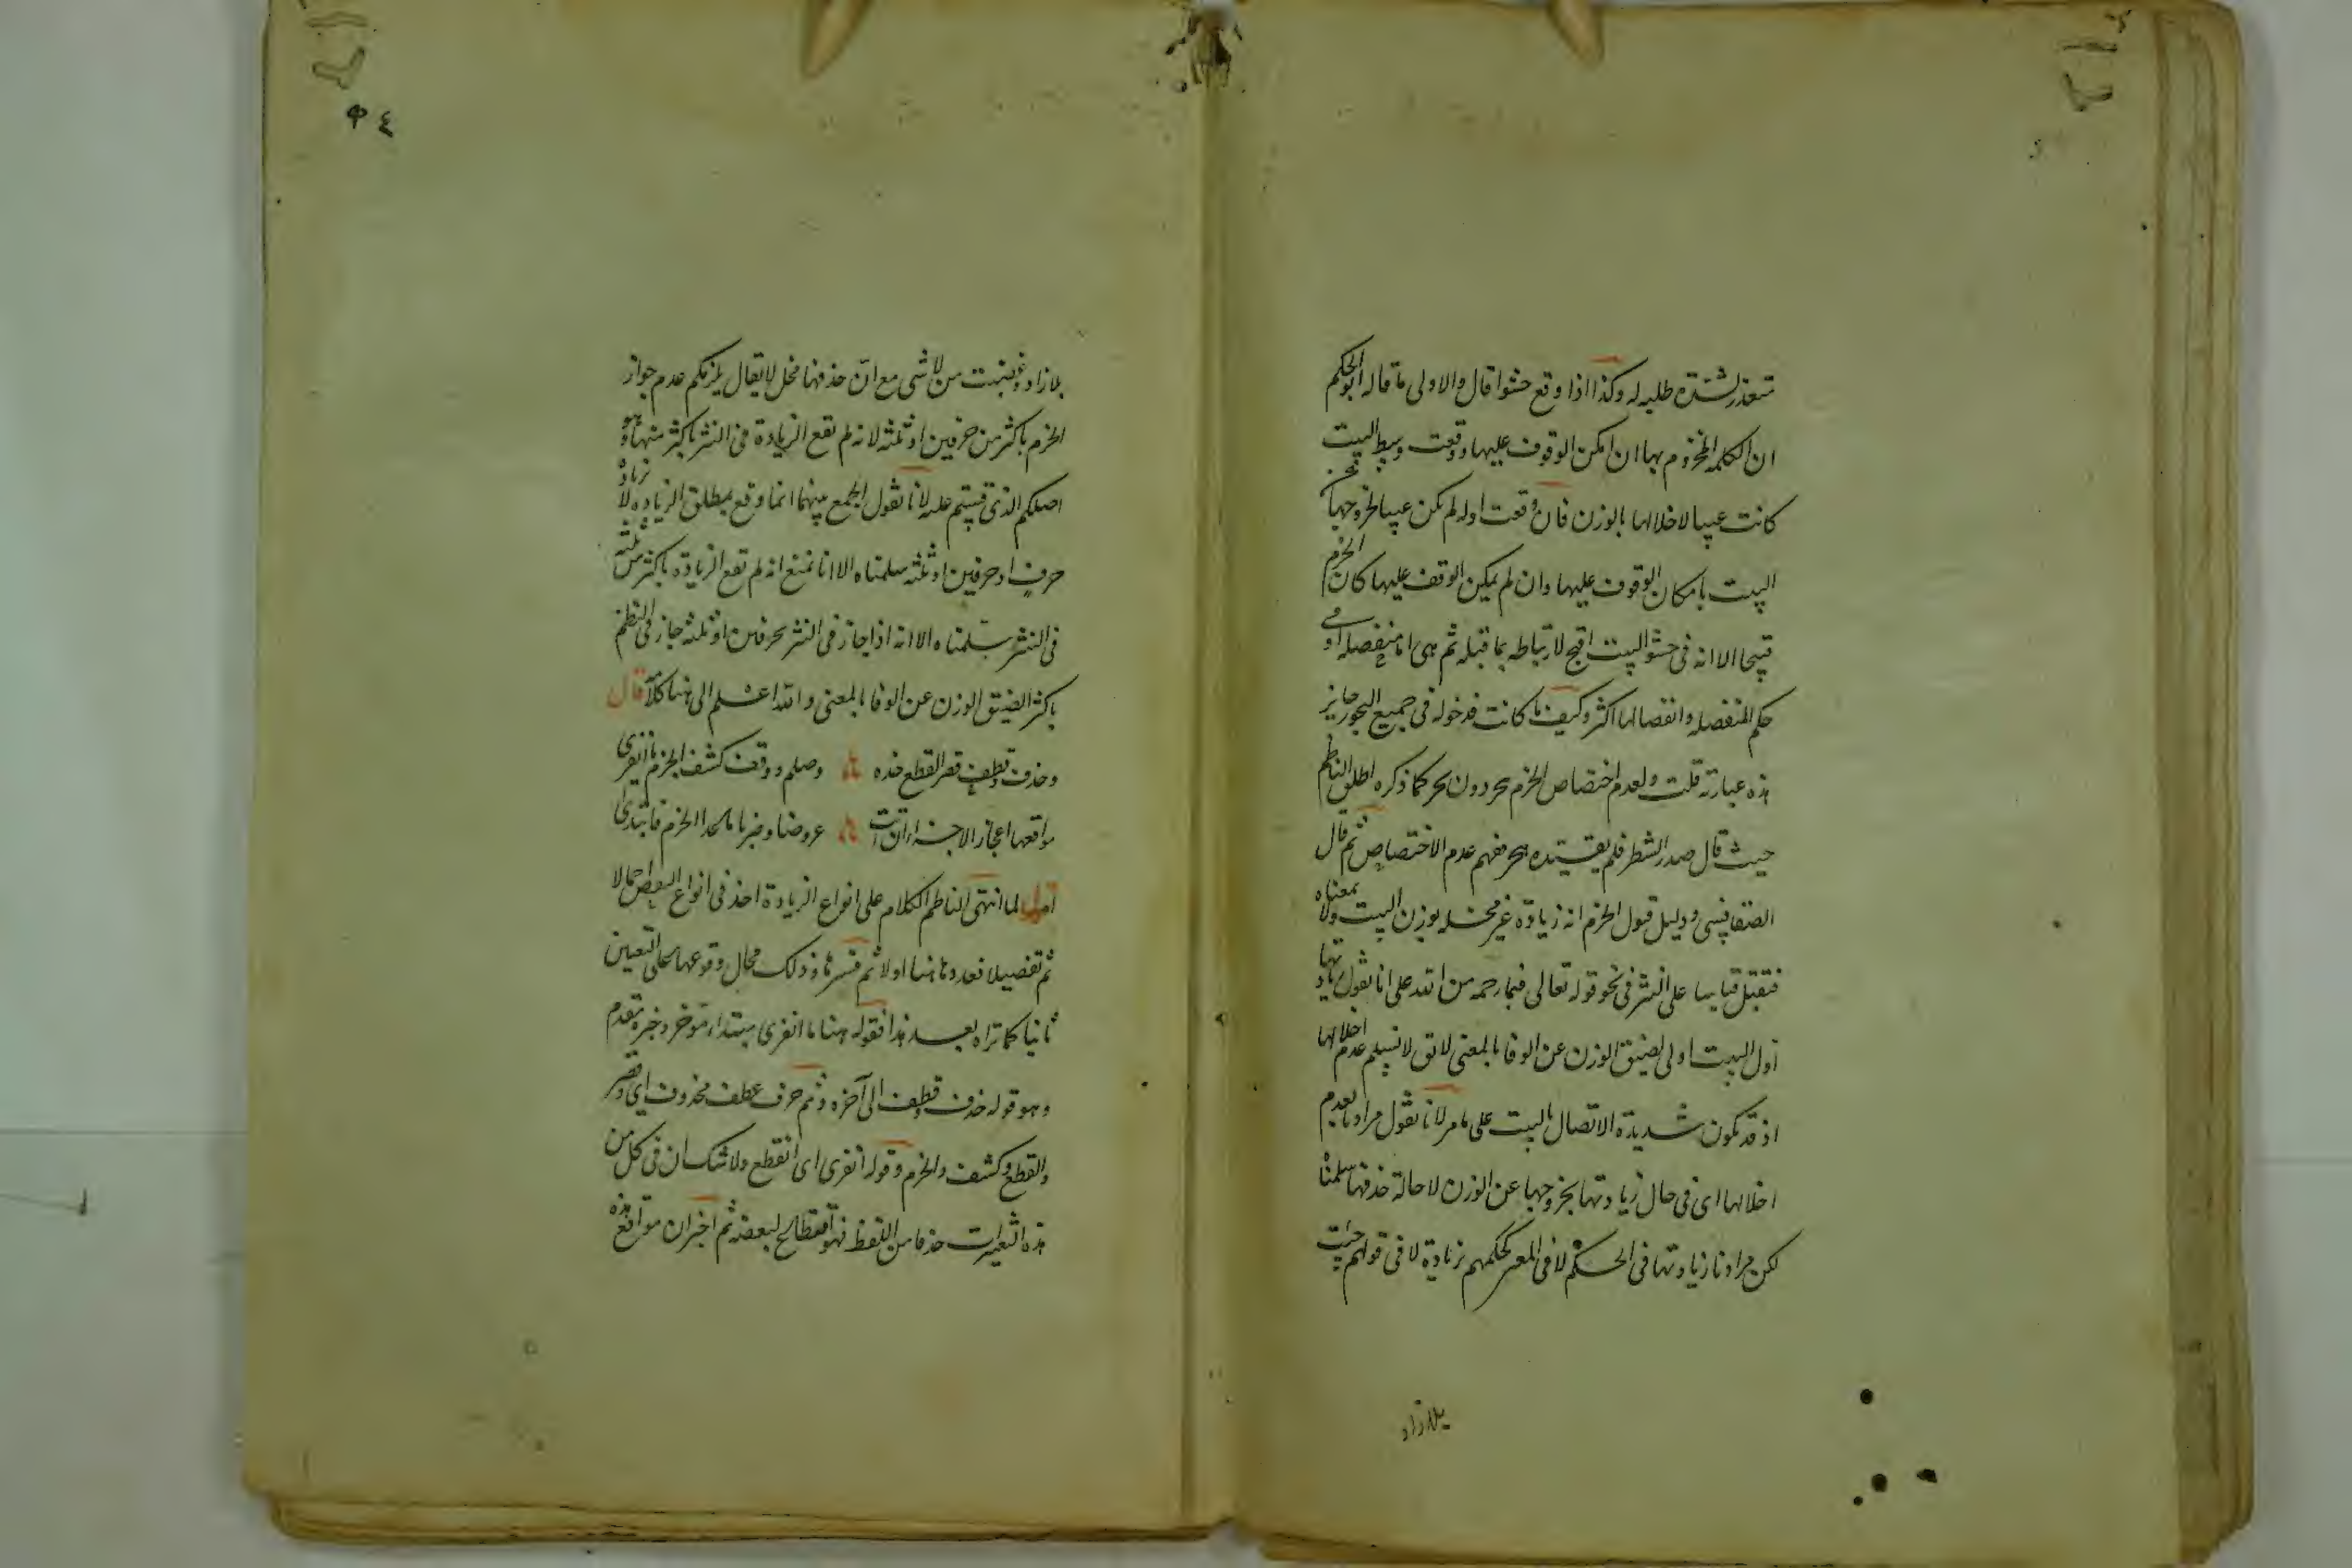 تتعذر لشدة طلبه له وكذا اذا وقع حشوا قال والاولى ما قاله ابو الحكم
ان الكلمة المخزوم بها ان امكن الوقوف عليها ووقعت وسط البيت
كانت عيبا لاخلالها بالوزن فان وقعت اوله لم تكن عيبا لخروجها عن
البيت بامكان الوقوف عليها وان لم يمكن الوقف عليها كان الخزم
قبيحا الا انه فى حشو البيت اقبح لارتباطه بما قبله ثم هى اما منفصله او فى
حكم المنفصله وانفصالها اكثر وكيف ما كانت فدخوله فى جميع البحور جايز
هذه عبارته قلت ولعدم اختصاص الخزم ببحر دون بحر كما ذكره اطلق الناظم
حيث قال صدر الشطر فلم يقيده ببحر ففهم عدم الاختصاص ثم قال
الصفاقسى ودليل قبول الخزم انه زيادة غير مخله بوزن البيت ولا بمعناه
فتقبل قياسا على النثر فى نحو قوله تعالى فبما رحمه من الله على انا نقول زيادتها
اول البيت اولى لضيق الوزن عن الوفا بالمعنى لا يق لا نسلم عدم اخلالها
اذ قد تكون شديدة الاتصال بالبيت على ما مر لانا نقول مرادنا بعدم
اخلالها اى فى حال زيادتها بخروجها عن الوزن لا حالة حذفها سلمنا
لكن مرادنا زيادتها فى الحكم لا فى المعنى كحكمهم بزيادة لا فى قولهم جئت
بلا زاد
بلا زاد وغضبت من لا شى مع ان حذفها مخل لا يقال يلزمكم عدم جواز
الخزم باكثر من حرفين او ثلثه لانه لم تقع الزيادة فى النثر باكثر منها وهو
اصلكم الذى قستم عليه لانا نقول الجمع بينهما انما وقع بمطلق الزياده لا زيادة
حرف او حرفين او ثلثه سلمناه الا انا نمنع انه لم تقع الزيادة باكثر من ثلثه
فى النثر سلمناه الا انه اذا جاز فى النثر بحرفين او ثلثه جاز فى النظم
باكثر لضيق الوزن عن الوفا بالمعنى والله اعلم الى هنا كلامه قال
وحذف وقطف قصر القطع حذه وصلم ووقف كشف الخزم ما انفرى
مواقعها اعجاز الاجزا اذ اتت عروضا وضربا ما عدا الخزم فابتدى
اقول لما انتهى الناظم الكلام على انواع الزيادة اخذ فى انواع النقص اجمالا
ثم تفصيلا فعددها هنا اولا ثم فسرها وذلك محال وقوعها على التعيين
ثانيا كما تراه بعد هذا فقوله هنا ما انفرى مبتداء مؤخر وخبره مقدم
وهو قوله حذف وقطف الى آخره وثم حرف عطف محذوف اى وقصر
والقطع وكشف والخزم وقوله انفرى اى انقطع ولا شك ان فى كل من
هذه التغييرات حذفا من اللفظ فهو اقتطاع لبعضه ثم اخبر ان مواقع هذه